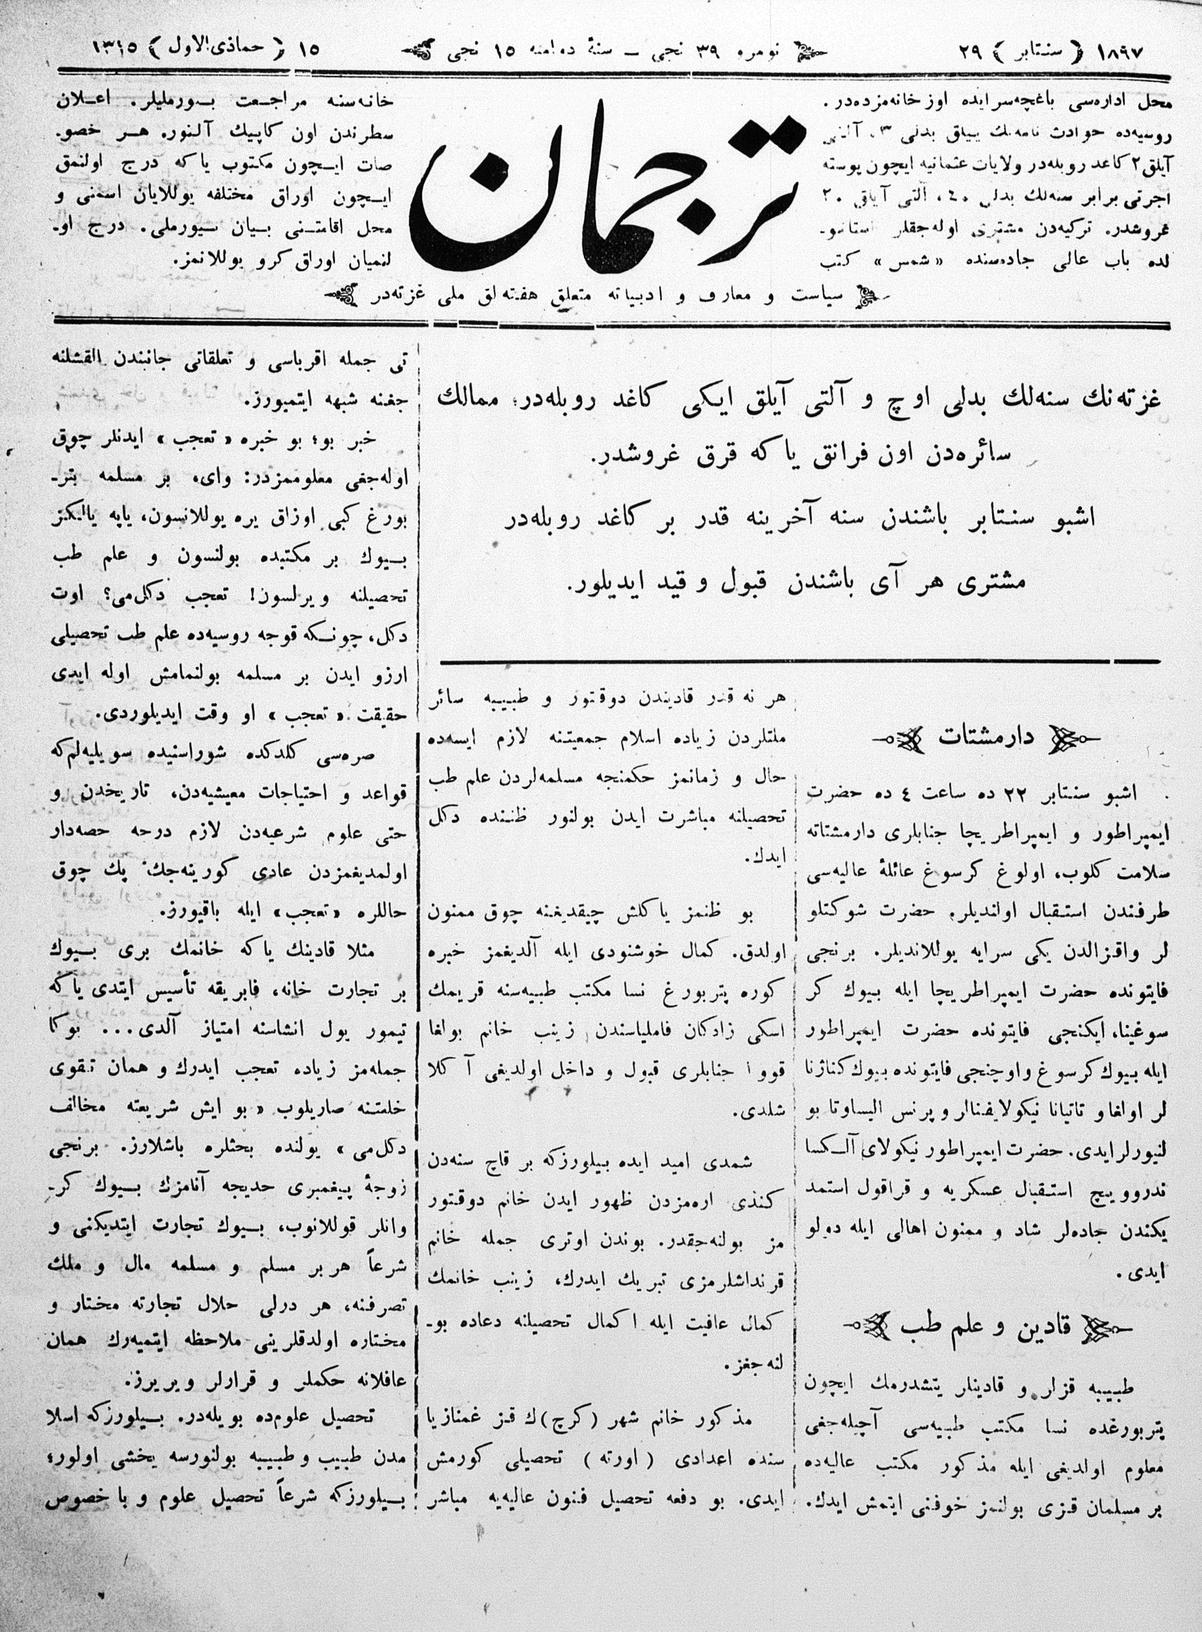 ١٨٩٧ ﴿ سنتابر ﴾ ٢٩
نومره ٣٩ نجی ـ سنهٔ دوامنه ١٥ نجی
١٥ ﴿ جماذی‌الاول ﴾ ١٣١٥
محل اداره‌سی باغچه‌سرایده اوز خانه‌مزده‌در .
روسیه‌ده حوادث نامه‌نك ییللق بدلی ٣، آلتی
آیلق ٢ كاغد روبله‌در ولایات عثمانیه ایچون پوسته
اجرتی برابر سنه‌لك بدلی ٤٠، آلتی آیلق ٢٠
غروشدر. تركیه‌دن مشتری اوله‌جقلر استانبو-
لده باب عالی جاده‌سنده «شمس» كتب
ترجمان
خانه‌سنه مراجعت بیورملیلر. اعلان
سطرندن اون كاپیك آلنور. هر خصو.
صات ایچون مكتوب یاكه درج اولنمق
ایچون اوراق مختلفه یوللایان اسمنی و
محل اقامتنی بیان بیورملی. درج او-
لنمیان اوراق كرو یوللانمز.
سیاست و معارف و ادبیاته متعلق هفته‌لق ملی غزته‌در
غزته‌نك سنه‌لك بدلی اوچ و آلتی آیلق ایكی كاغد روبله‌در؛ ممالك
سائره‌دن اون فرانق یاكه قرق غروشدر.
اشبو سنتابر باشندن سنه آخرینه قدر بر كاغد روبله‌در
مشتری هر آی باشندن قبول و قید ایدیلور.
دارمشتات
اشبو سنتابر ٢٢ ده ساعت ٤ ده حضرت
ایمپراطور و ایمپراطریچا جنابلری دارمشتاته
سلامت كلوب، اولوغ كرسوغ عائلهٔ عالیه‌سی
طرفندن استقبال اولندیلر. حضرت شوكتلو
لر واقزالدن یكی سرایه یوللاندیلر. برنجی
فایتونده حضرت ایمپراطریچا ایله بیوك كر
سوغینا، ایكنجی فایتونده حضرت ایمپراطور
ایله بیوك كرسوغ و اوچنجی فایتونده بیوك كناژنا
لر اولغا و تاتیانا نیكولایفنالر و پرنس الیساوتا بو
لنیورلر ایدی. حضرت ایمپراطور نیكولای آلكسا
ندروویچ استقبال عسكریه و قراقول استمد
یكندن جاده‌لر شاد و ممنون اهالی ایله دولو
ایدی.
قادین و علم طب
طبیبه قزلر و قادینلر یتشدرمك ایچون
پتربورغده نسا مكتب طبیه‌سی آچیله‌جغی
معلوم اولدیغی ایله مذكور مكتب عالیه‌ده
بر مسلمان قزی بولنمز خوفنی ایتمش ایدك.
هر نه قدر قادیندن دوقتور و طبیبه سائر
ملتلردن زیاده اسلام جمعیتنه لازم ایسه‌ده
حال و زمانمز حكمنجه مسلمه‌لردن علم طب
تحصیلنه مباشرت ایدن بولنور ظننده دكل
ایدك.
بو ظنمز یاكلش چیقدیغنه چوق ممنون
اولدق. كمال خوشنودی ایله آلدیغمز خبره
كوره پتربورغ نسا مكتب طبیه‌سنه قریمك
اسكی زادكان فامیلیاسندن زینب خانم بولغا
قووا جنابلری قبول و داخل اولدیغی آكلا
شلدی.
شمدی امید ایده بیلورزكه بر قاچ سنه‌دن
كندی اره‌مزدن ظهور ایدن خانم دوقتور
مز بولنه‌جقدر. بوندن اوتری جمله خانم
قرنداشلرمزی تبریك ایدرك، زینب خانمك
كمال عافیت ایله اكمال تحصیلنه دعاده بو-
لنه‌جغز.
مذكور خانم شهر (كرچ)ك قز غمنازیا
سنده اعدادی (اورته) تحصیلی كورمش
ایدی. بو دفعه تحصیل فنون عالیه‌یه مباشر
تی جمله اقرباسی و تعلقاتی جانبندن القشلنه
جغنه شبهه ایتمیورز.
خبر بو؛ بو خبره «تعجب» ایدنلر چوق
اوله‌جغی معلوممزدر: وای، بر مسلمه پتر-
بورغ كبی اوزاق یره یوللانسون، یاپه یالكز
بیوك بر مكتبده بولنسون و علم طب
تحصیلنه ویرلسون! تعجب دكل‌می؟ اوت
دكل، چونكه قوجه روسیه‌ده علم طب تحصیلی
ارزو ایدن بر مسلمه بولنمامش اوله ایدی
حقیقت «تعجب» او وقت ایدیلوردی.
صره‌سی كلدكده شوراسنیده سویلیه‌لم‌كه
قواعد و احتیاجات معیشیه‌دن، تاریخدن و
حتی علوم شرعیه‌دن لازم درجه حصه‌دار
اولمدیغمزدن عادی كورینه‌جك پك چوق
حاللره «تعجب» ایله باقیورز.
مثلا قادینك یاكه خانمك بری بیوك
بر تجارت خانه، فابریقه تأسیس ایتدی یاكه
تیمور یول انشاسنه امتیاز آلدی... بوكا
جمله‌مز زیاده تعجب ایدرك و همان تقوی
خلمتنه صاریلوب «بو ایش شریعته مخالف
دكل‌می» یولنده بحثلره باشلارز. برنجی
زوجهٔ پیغمبری حدیجه آنامزك بیوك كر-
وانلر قوللانوب، بیوك تجارت ایتدیكنی و
شرعاً هر بر مسلم و مسلمه مال و ملك
تصرفنه، هر درلی حلال تجارته مختار و
مختاره اولدقلرینی ملاحظه ایتمیه‌رك همان
عاقلانه حكملر و قرارلر ویریرز.
تحصیل علومده بویله‌در. بیلورزكه اسلا
مدن طبیب و طبیبه بولنورسه یخشی اولور؛
بیلورزكه شرعاً تحصیل علوم و با خصوص